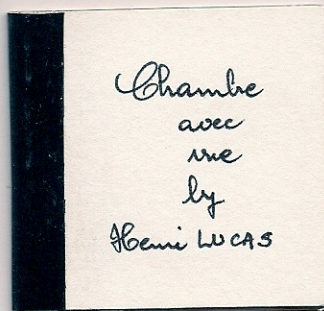 Chambre
avec
vue
by
Henri LUCAS